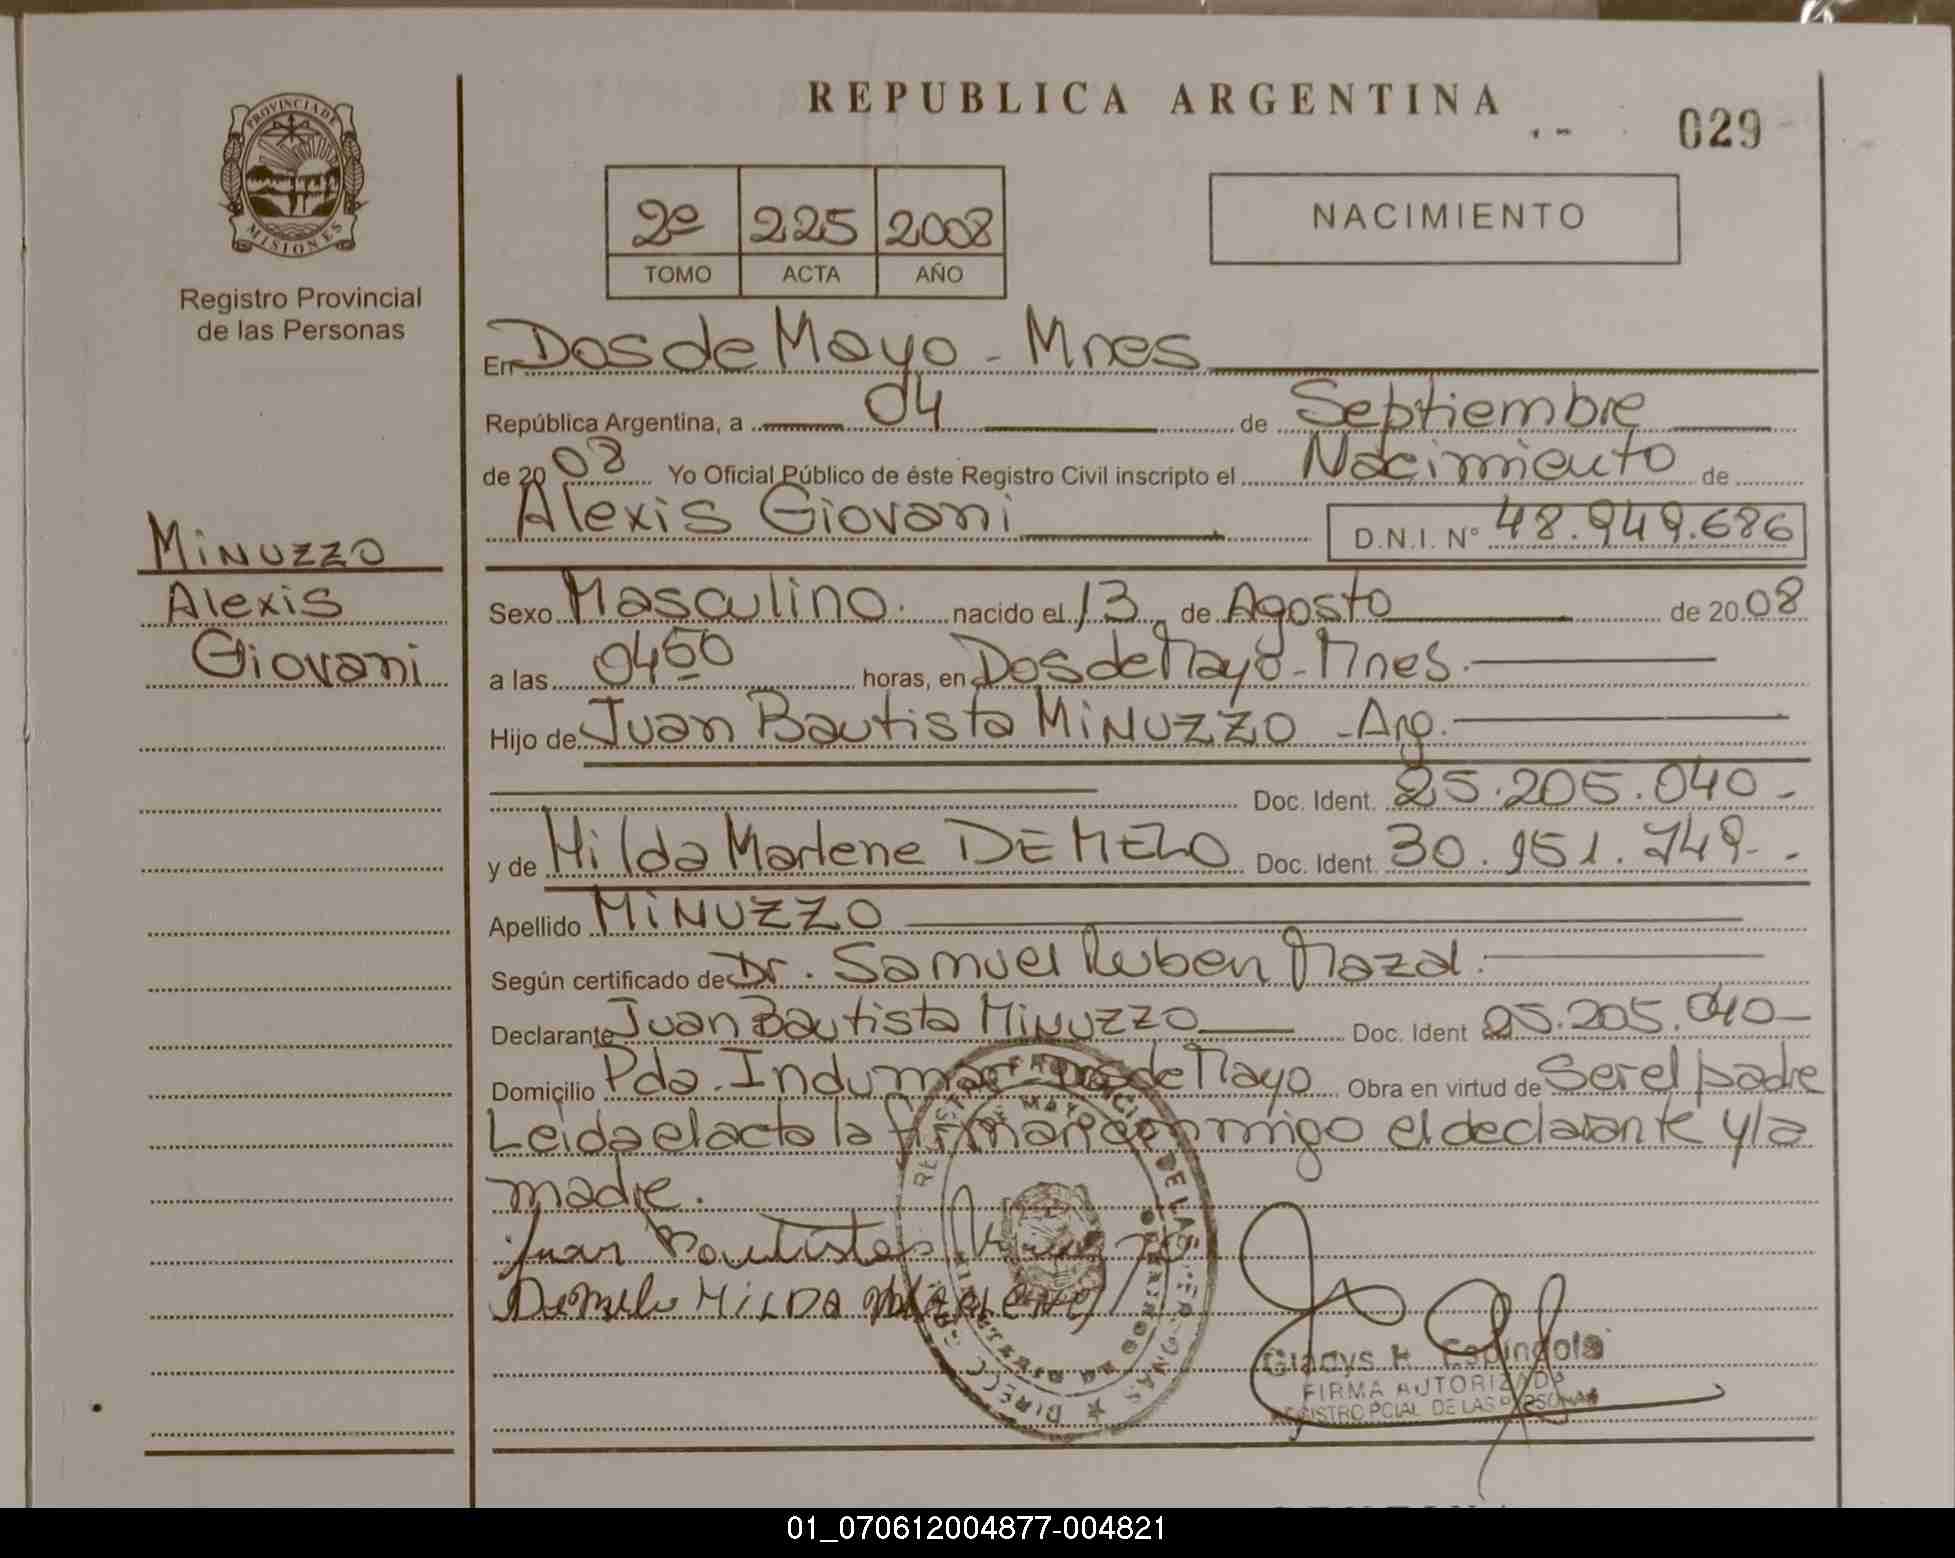 REPUBLICA ARGENTINA
029
PROVINCIA DE
MISIONES
Registro Provincial
de las Personas
2º 225 2008
TOMO ACTA AÑO
NACIMIENTO
En Dos de Mayo - Mnes
República Argentina, a 04 de Septiembre
de 2008 Yo Oficial Público de éste Registro Civil inscripto el Nacimiento de
Alexis Giovani D.N.I. N° 48.949.686
MINUZZO
Alexis
Giovani
Sexo Masculino. nacido el 13 de Agosto de 2008
a las 0450 horas, en Dos de Mayo - Mnes.
Hijo de Juan Bautista MINUZZO - Arg.
Doc. Ident. 25.205.040-
y de Hilda Marlene DE MELO Doc. Ident. 30.951.749--
Apellido MINUZZO
Según certificado de Dr. Samuel Ruben Nazal.
Declarante Juan Bautista MINUZZO Doc. Ident 25.205.040-
Domicilio Pda. Indumar Dos de Mayo Obra en virtud de Ser el padre
Leida el acta la firman conmigo el declarante y la
madre.
Juan Bautista
Demelo HILDA
Gladys H. Espindola
FIRMA AUTORIZADA
REGISTRO PCIAL DE LAS PERSONAS
01_070612004877-004821